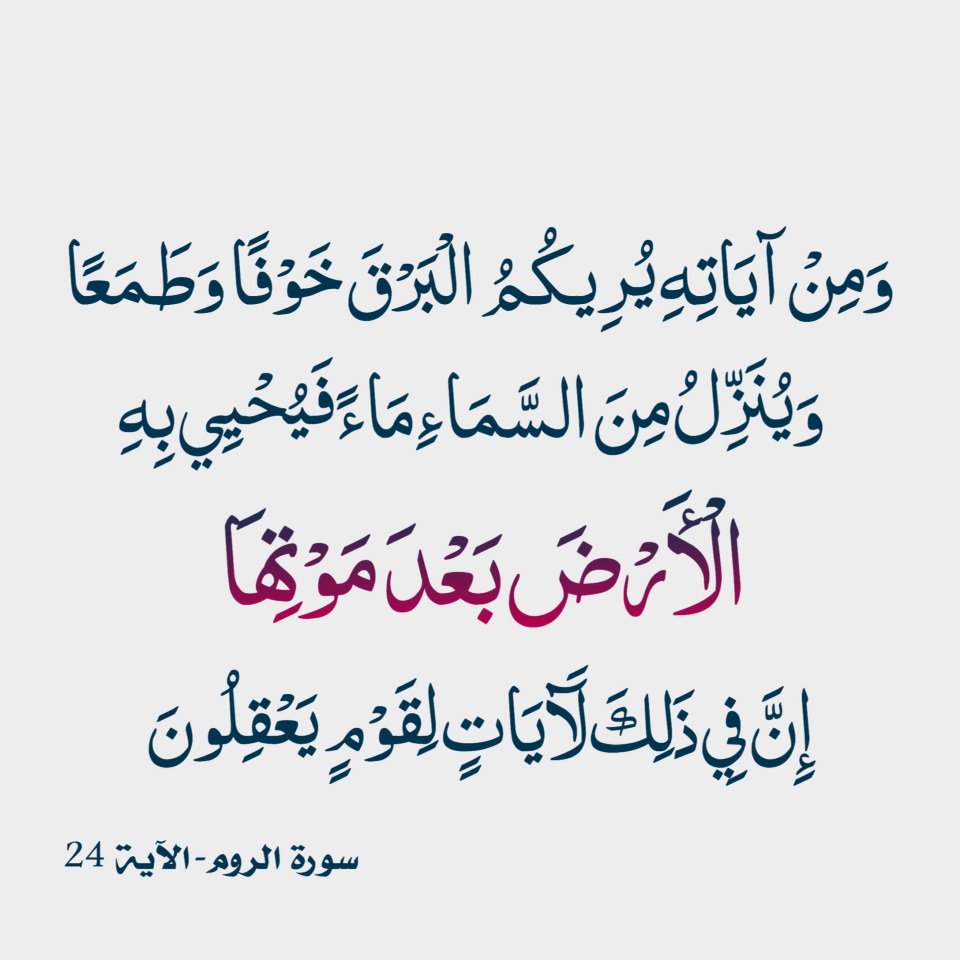 وَمِنْ آيَاتِهِ يُرِيكُمُ الْبَرْقَ خَوْفًا وَطَمَعًا
وَيُنَزِّلُ مِنَ السَّمَاءِ مَاءً فَيُحْيِي بِهِ
الْأَرْضَ بَعْدَ مَوْتِهَا
إِنَّ فِي ذَلِكَ لَآيَاتٍ لِقَوْمٍ يَعْقِلُونَ
سورة الروم-الآية 24